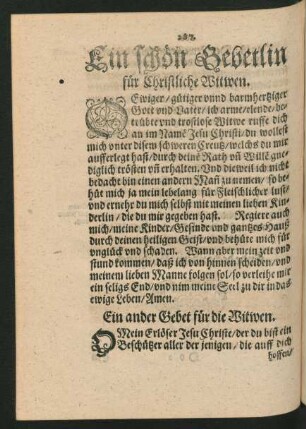 Ein schön Gebetlin
für Christliche Witwen.
O Ewiger/ gütiger vnnd barmhertziger
Gott vnd Vater/ ich arme/ elende/ be-
trübte vnd trostlose Witwe ruffe dich
an im Namē Jesu Christi/ du wollest
mich vnter disem schweren Creutz/ welchs du mir
aufferlegt hast/ durch deine Rath vn̄ Willē gne-
diglich trösten vn̄ erhalten. Vnd dieweil ich nicht
bedacht bin einen andern Mañ zu nemen/ so be-
hüt mich ja mein lebelang für Fleischlicher lust/
vnd ernehe du mich selbst mit meinen lieben Kin-
derlin/ die du mir gegeben hast. Regiere auch
mich/ meine Kinder/ Gesinde vnd gantzes Hauß
durch deinen heiligen Geist/ vnd behüte mich für
vnglück vnd schaden. Wann aber mein zeit vnd
stund kommen/ daß ich von hinnen scheiden/ vnd
meinem lieben Manne folgen sol/ so verleihe mir
ein seligs End/ vnd nim meine Seel zu dir in das
ewige Leben/ Amen.
Ein ander Gebet für die Witwen.
O Mein Erlöser Jesu Christe/ der du bist ein
Beschützer aller der jenigen/ die auff dich
hoffen/